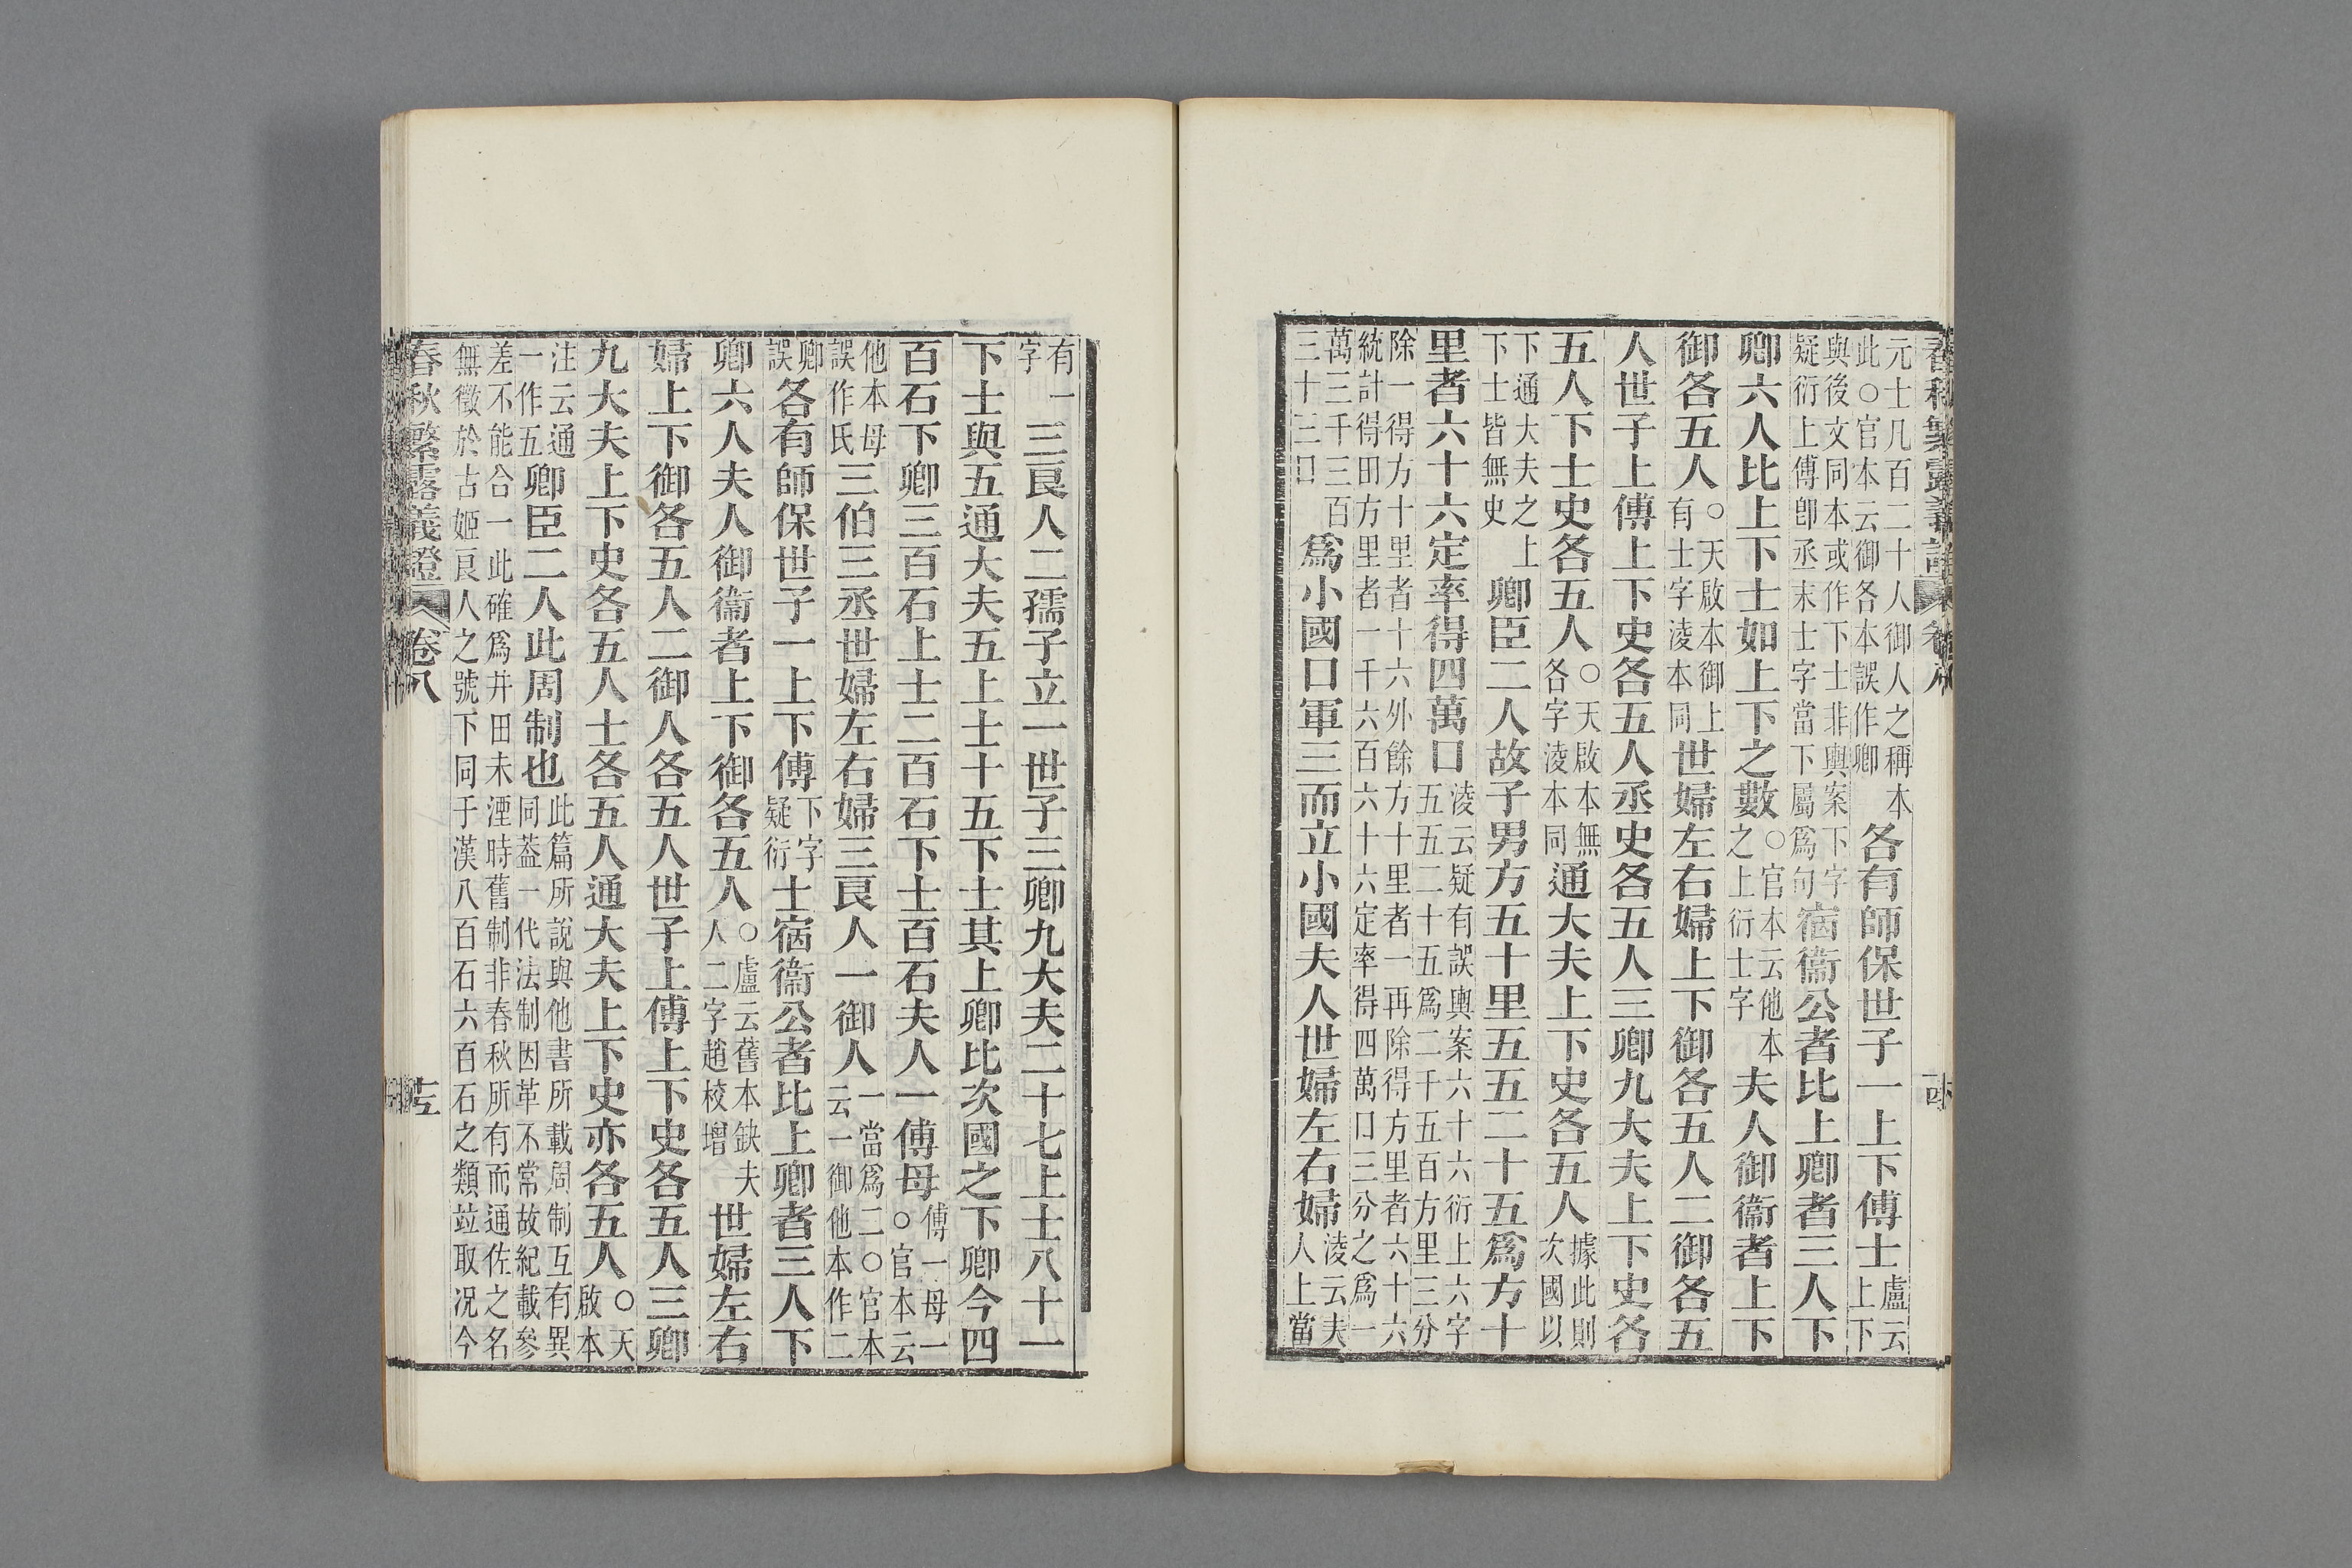 春秋繁露義證 卷八
元士凡百二十人御人之稱本此○官本云御各本誤作卿各有師保世子一上下傅士盧云上下
與後文同本或作下士非輿案下字疑衍上傅卽丞末士字當下屬爲句宿衞公者比上卿者三人下
卿六人比上下士如上下之數○官本云他本之上衍士字夫人御衞者上下
御各五人○天啟本御上有士字淩本同世婦左右婦上下御各五人二御各五
人世子上傅上下史各五人丞史各五人三卿九大夫上下史各
五人下士史各五人○天啟本無各字淩本同通大夫上下史各五人據此則次國以
下通大夫之上下士皆無史卿臣二人故子男方五十里五五二十五爲方十
里者六十六定率得四萬口淩云疑有誤輿案六十六衍上六字五五二十五爲二千五百方里三分
除一得方十里者十六外餘方十里者一再除得方里者六十六統計得田方里者一千六百六十六定率得四萬口三分之爲一
萬三千三百三十三口爲小國口軍三而立小國夫人世婦左右婦淩云夫人上當
有一字三良人二孺子立一世子三卿九大夫二十七上士八十一
下士與五通大夫五上士十五下士其上卿比次國之下卿今四
百石下卿三百石上士二百石下士百石夫人一傅母傅一母一○官本云
他本母誤作氏三伯三丞世婦左右婦三良人一御人一當爲二○官本云一御他本作二
卿誤各有師保世子一上下傅下字疑衍士宿衞公者比上卿者三人下
卿六人夫人御衞者上下御各五人○盧云舊本缺夫人二字趙校增世婦左右
婦上下御各五人二御人各五人世子上傅上下史各五人三卿
九大夫上下史各五人士各五人通大夫上下史亦各五人○天啟本
注云通一作五卿臣二人此周制也此篇所說與他書所載周制互有異同蓋一代法制因革不常故紀載參
差不能合一此確爲井田未湮時舊制非春秋所有而通佐之名無徵於古姬良人之號下同于漢八百石六百石之類竝取况今
春秋繁露義證 卷八 十五